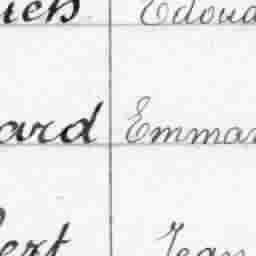 ich Edoua
ard Emman
bert Jean